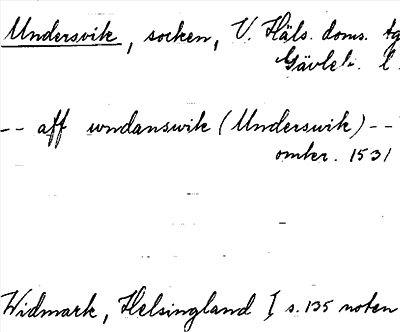 Undersvik, socken, V. Häls. doms. tg
Gävleb. l.
-- aff wndanswik (Underswik) --
omkr. 1531
Widmark, Helsingland I s. 135 noten